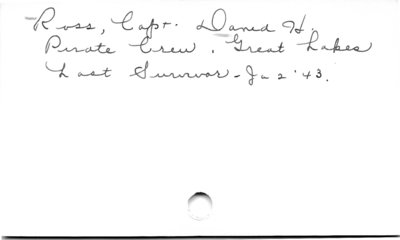 Ross, Capt. David H.
Pirate Crew. Great Lakes
Last Survivor - Ja 2 '43.